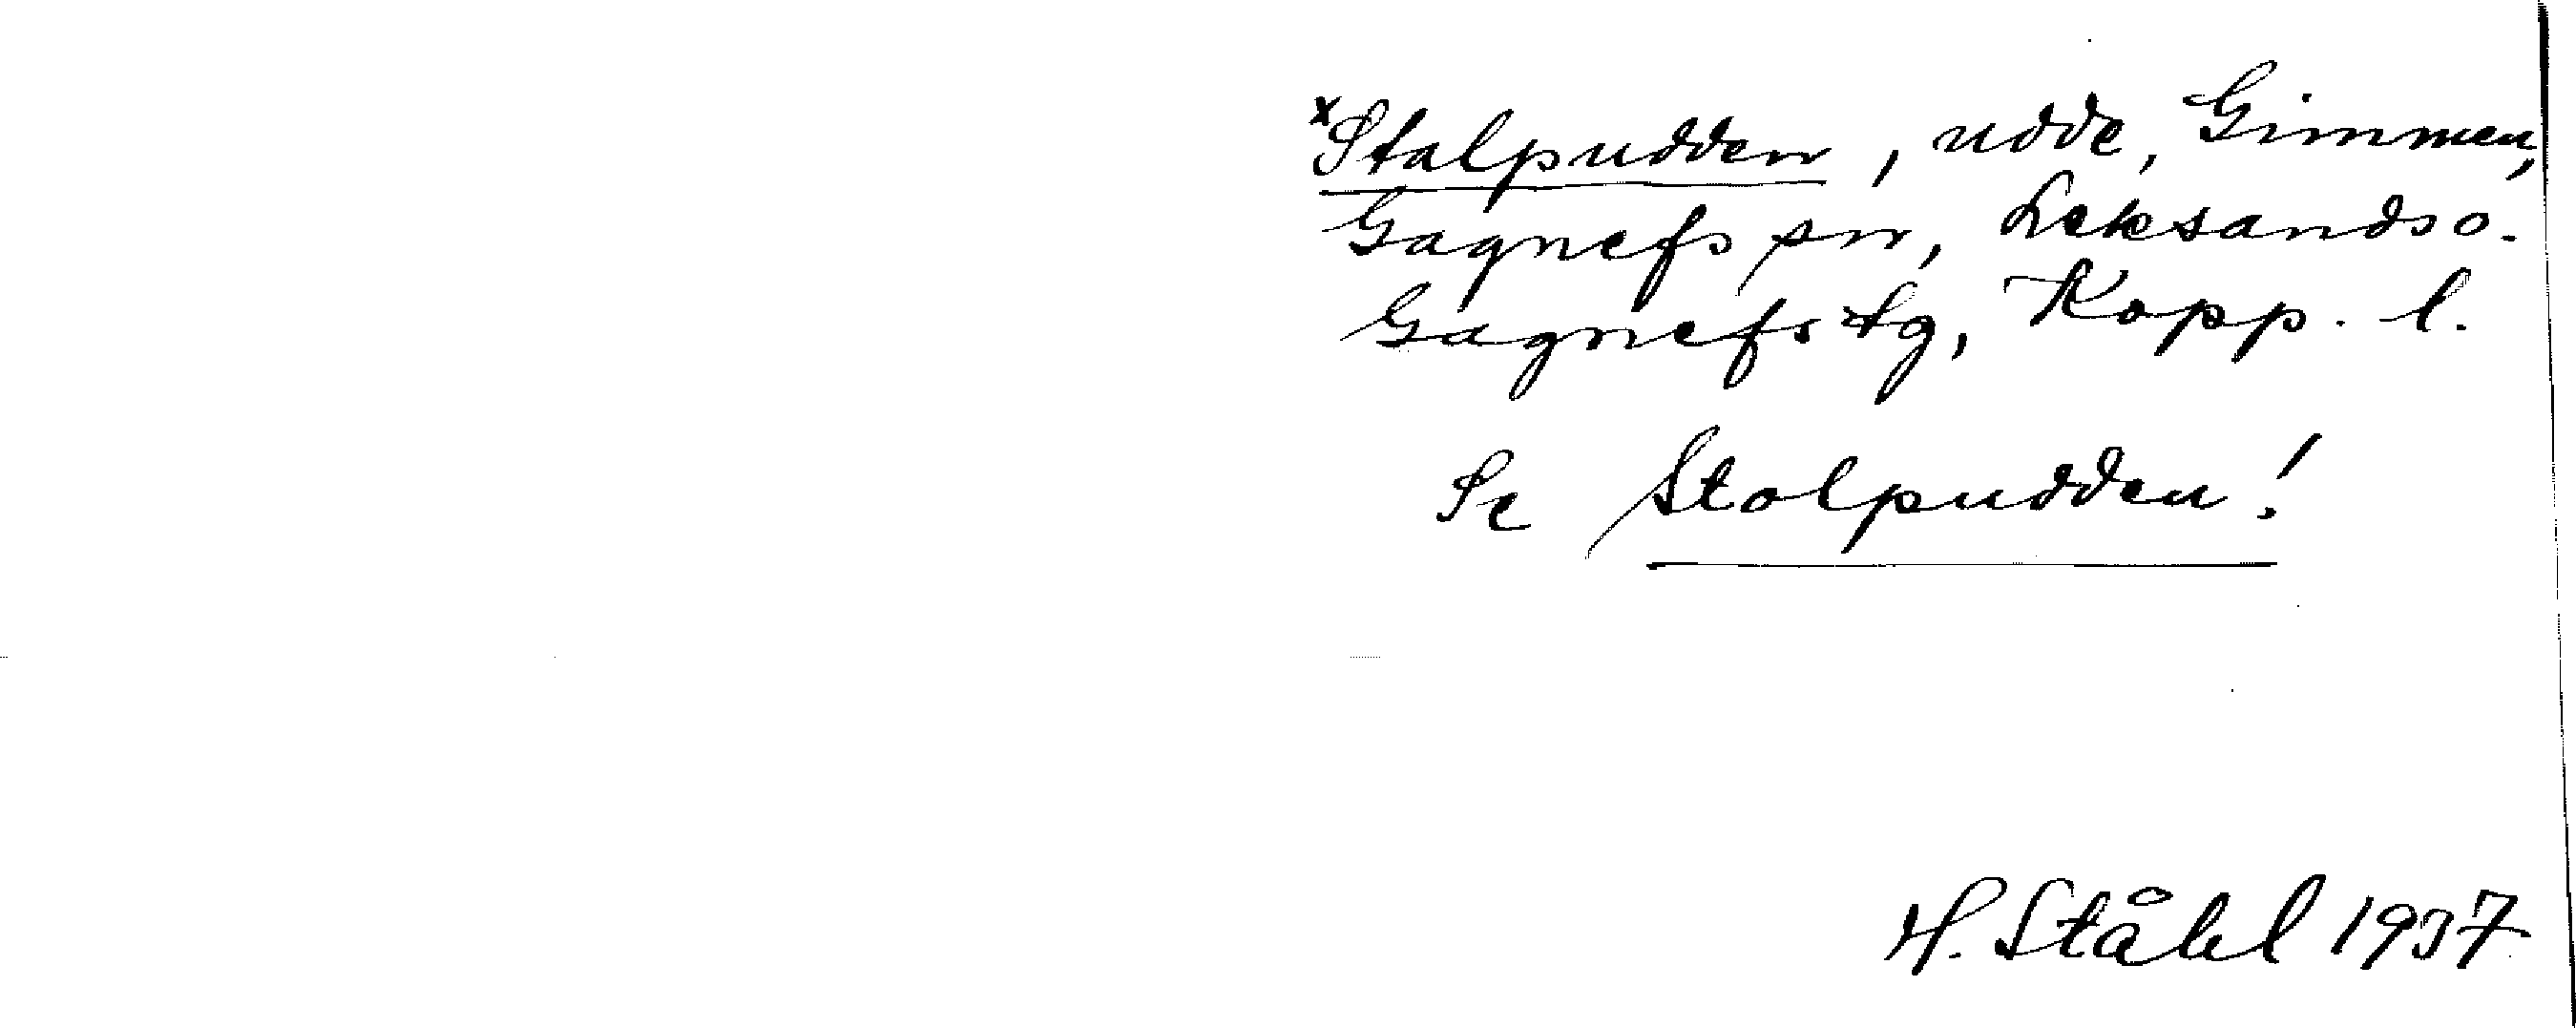 xStalpudden, udde, Gimmen,
Gagnefs sn, Leksands o.
Gagnefs tg, Kopp. l.
Se Stolpudden!
H. Ståhl 1937